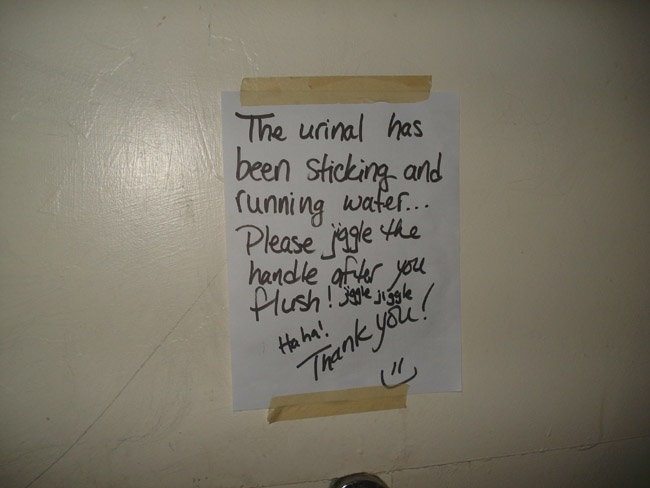 The urinal has
been sticking and
running water...
Please jiggle the
handle after you
flush! jiggle jiggle
Haha!
Thank you!